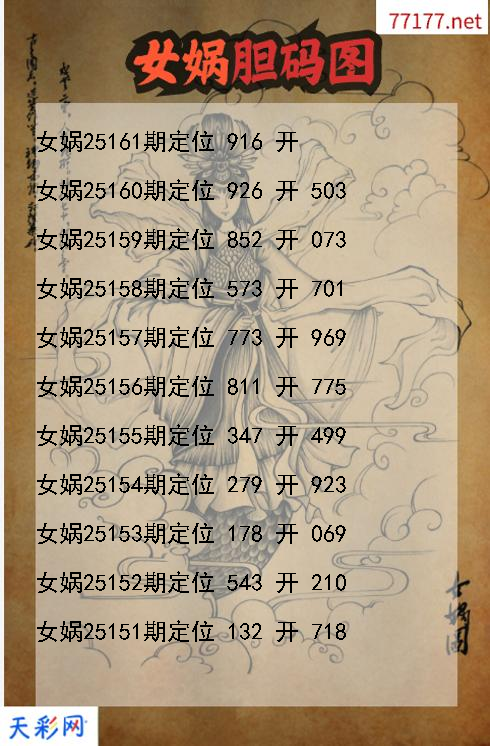 77177.net
女娲胆码图
女娲25161期定位 916 开
女娲25160期定位 926 开 503
女娲25159期定位 852 开 073
女娲25158期定位 573 开 701
女娲25157期定位 773 开 969
女娲25156期定位 811 开 775
女娲25155期定位 347 开 499
女娲25154期定位 279 开 923
女娲25153期定位 178 开 069
女娲25152期定位 543 开 210
女娲25151期定位 132 开 718
女娲图
天彩网